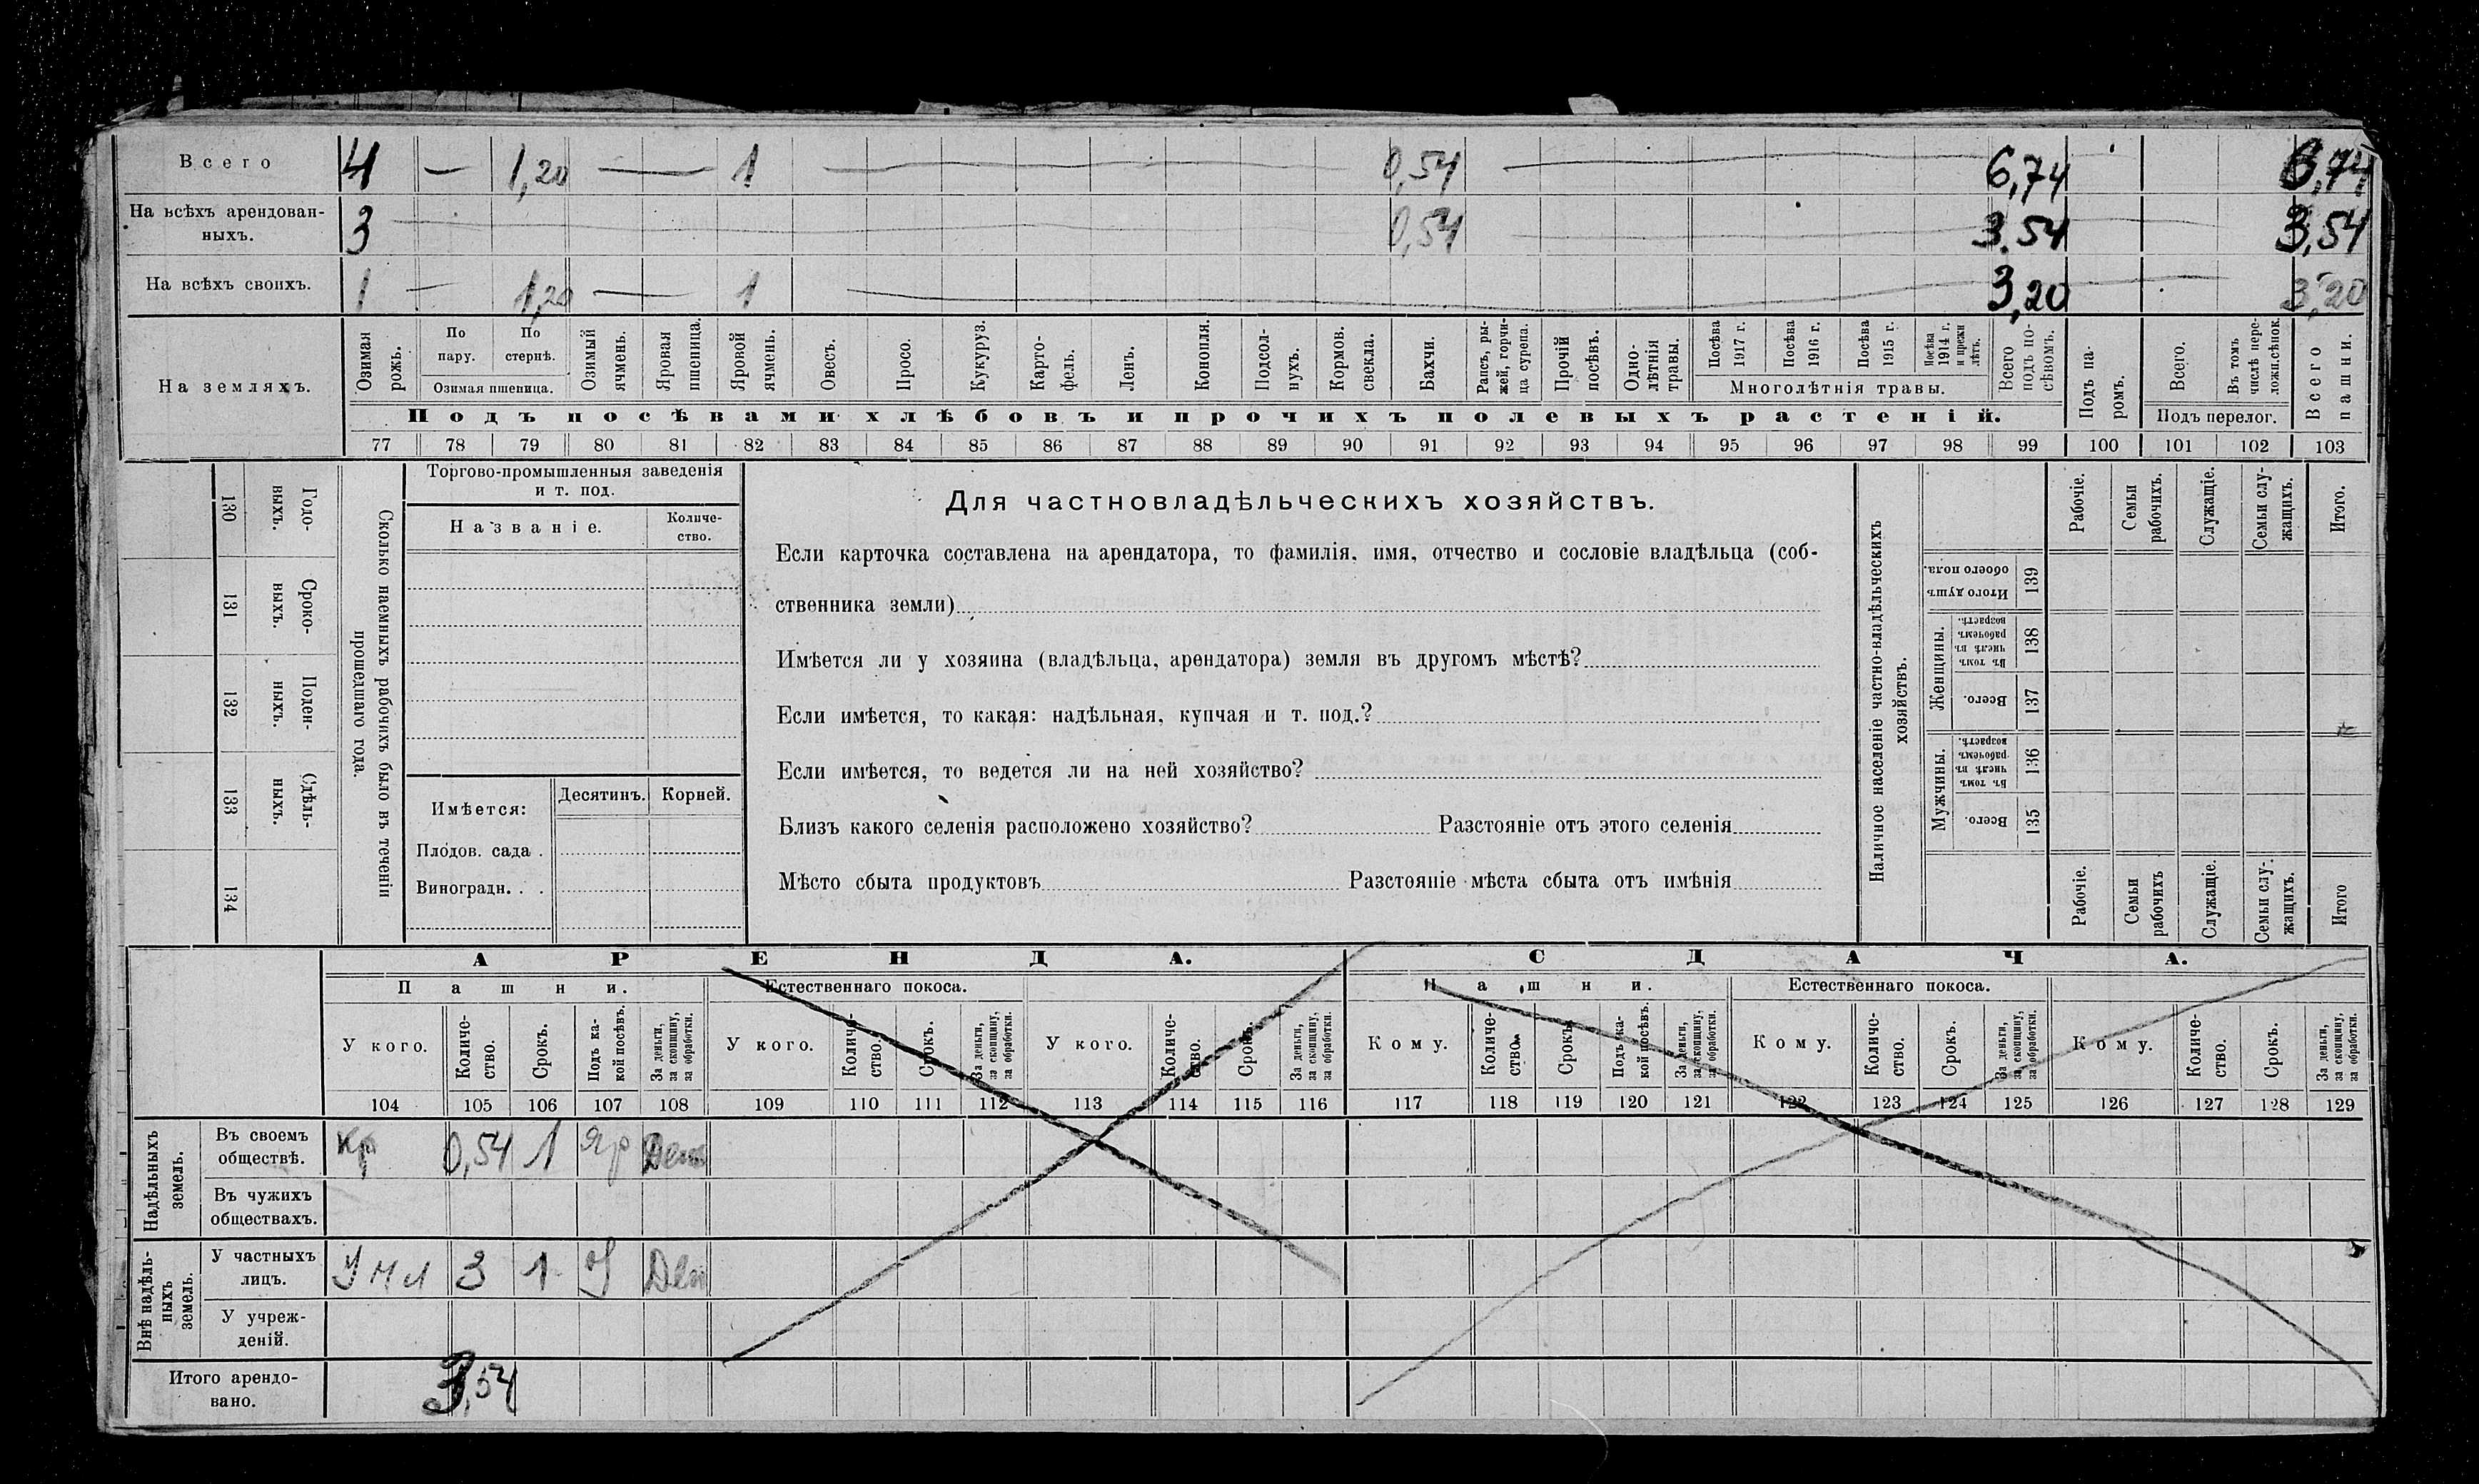 Всего 4 — 1,20 — 1 — 0,54 — 6,74 6,74
На всѣхъ арендован-
ныхъ. 3 0,54 3.54 3,54
На всѣхъ своихъ. 1 — 1,20 — 1 3,20 3,20
На земляхъ.
Озимая рожь.
По пару.
По стернѣ.
Озимая пшеница.
Озимый ячмень.
Яровая пшеница.
Яровой ячмень.
Овесъ.
Просо.
Кукуруз.
Карто-
фель.
Ленъ.
Конопля.
Подсол-
нухъ.
Кормов. свекла.
Бахчи.
Рапсъ, ры-
жей, горчи-
ца суреппа.
Прочій посѣвъ.
Одно-
лѣтнія травы.
Посѣва 1917 г.
Посѣва 1916 г.
Посѣва 1915 г.
Посѣва 1914 г. и прежн лѣтъ.
Многолѣтнія травы.
Всего подъ по-
сѣвомъ.
Подъ па-
ромъ.
Всего.
Въ томъ числѣ пере-
ложн.сѣнок.
Подъ перелог.
Всего пашни.
Подъ посѣвами хлѣбовъ и прочихъ полевыхъ растеній.
77 78 79 80 81 82 83 84 85 86 87 88 89 90 91 92 93 94 95 96 97 98 99 100 101 102 103
Сколько наемныхъ рабочихъ было въ теченіи
прошедшаго года.
Годо-
выхъ.
130
Сроко-
ныхъ.
131
Поден-
ныхъ.
132
Сдѣль-
ныхъ.
133
134
Торгово-промышленныя заведенія
и т. под.
Названіе.
Количе-
ство.
Имѣется:
Десятинъ.
Корней.
Плодов. сада .
Виноградн. . .
Для частновладѣльческихъ хозяйствъ.
Если карточка составлена на арендатора, то фамилія, имя, отчество и сословіе владѣльца (соб-
ственника земли)
Имѣется ли у хозяина (владѣльца, арендатора) земля въ другомъ мѣстѣ?
Если имѣется, то какая: надѣльная, купчая и т. под.?
Если имѣется, то ведется ли на ней хозяйство?
Близъ какого селенія расположено хозяйство? Разстояніе отъ этого селенія
Мѣсто сбыта продуктовъ Разстояніе мѣста сбыта отъ имѣнія
Наличное населеніе частно-владѣльческихъ
хозяйствъ.
Рабочіе.
Семьи рабочихъ.
Служащіе.
Семьи слу-
жащихъ.
Итого.
Итого душъ обоего пола.
139
Женщины.
Въ томъ числѣ въ рабочемъ возрастѣ.
138
Всего.
137
Мужчины.
Въ томъ числѣ въ рабочемъ возрастѣ.
136
Всего.
135
Рабочіе.
Семьи рабочихъ
Служащіе.
Семьи слу-
жащихъ.
Итого
АРЕНДА. СДАЧА.
Пашни. Естественнаго покоса. Пашни. Естественнаго покоса.
У кого.
Количе-
ство.
Срокъ.
Подъ ка-
кой посѣвъ.
За деньги,
за скопщину,
за обработки.
У кого.
Количе-
ство.
Срокъ.
За деньги,
за скопщину,
за обработки.
У кого.
Количе-
ство.
Срокъ.
За деньги,
за скопщину,
за обработки.
Кому.
Количе-
ство.
Срокъ.
Подъ ка-
кой посѣвъ.
За деньги,
за скопщину,
за обработки.
Кому.
Количе-
ство.
Срокъ.
За деньги,
за скопщину,
за обработки.
Кому.
Количе-
ство.
Срокъ.
За деньги,
за скопщину,
за обработки.
104 105 106 107 108 109 110 111 112 113 114 115 116 117 118 119 120 121 122 123 124 125 126 127 128 129
Надѣльныхъ
земель.
Въ своемъ
обществѣ. Кр 0,54 1 Яр Ден
Въ чужихъ
обществахъ.
Внѣ надѣль-
ныхъ
земель.
У частныхъ
лицъ. 3 1 Ден
У учреж-
деній.
Итого арендо-
вано. 3,54